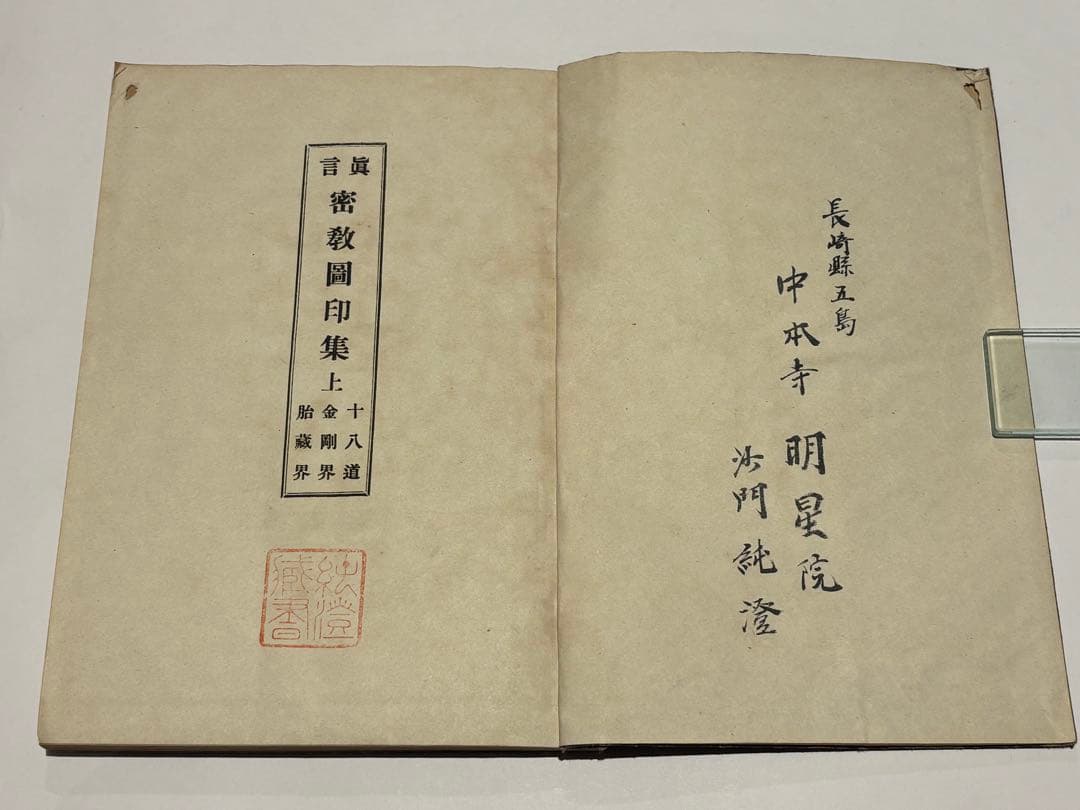 長崎縣五島
中本寺 明星院
沙門純澄
眞言
密教圖印集 上
十八道
金剛界
胎藏界
純澄
藏書